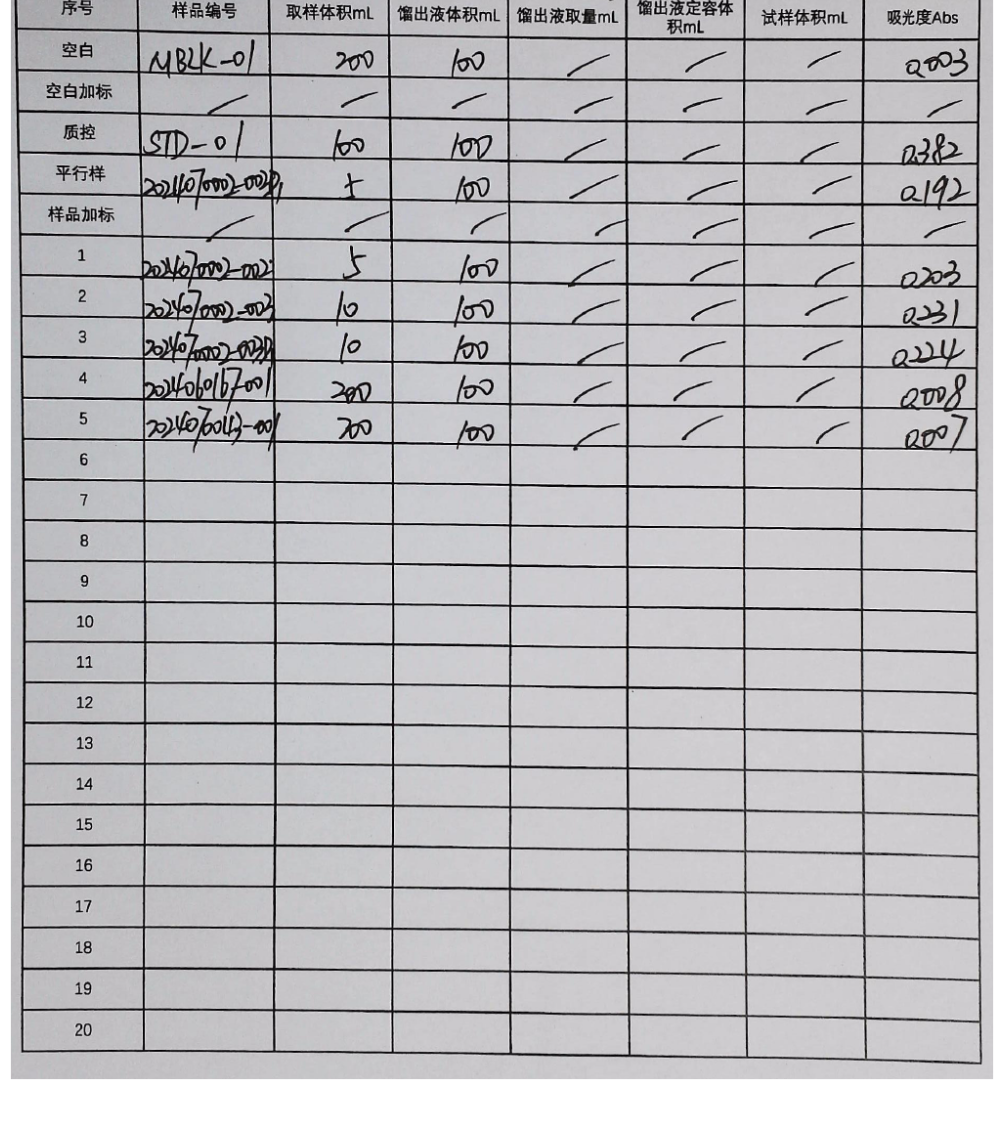 序号 样品编号 取样体积mL 馏出液体积mL 馏出液取量mL 馏出液定容体积mL 试样体积mL 吸光度Abs
空白 MBLK-01 200 100 / / / 0.003
空白加标 / / / / / / /
质控 STD-01 100 100 / / / 0.382
平行样 2024070002-002P1 5 100 / / / 0.192
样品加标 / / / / / / /
1 2024070002-002 5 100 / / / 0.203
2 2024070002-003 10 100 / / / 0.231
3 2024070002-003P 10 100 / / / 0.224
4 2024060167-001 200 100 / / / 0.008
5 2024070043-001 200 100 / / / 0.007
6
7
8
9
10
11
12
13
14
15
16
17
18
19
20